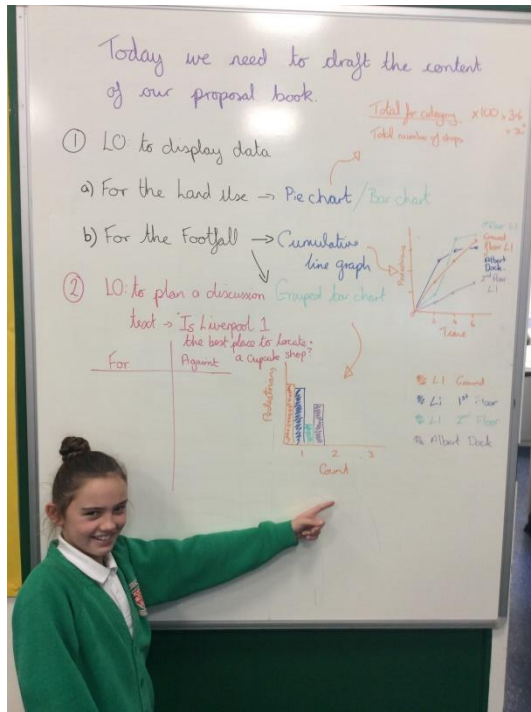 Today we need to draft the content
of our proposal book.
Total for category x100 x3.6
Total number of shops = x°
① LO: to display data
a) For the Land Use → Pie chart / Bar chart
b) For the Footfall → Cumulative
line graph
Grouped bar chart
Pedestrians
2 4 6
Time
1st Floor L1
Ground
Floor L1
Albert
Dock
2nd Floor
L1
② LO: to plan a discussion
text → "Is Liverpool 1
the best place to locate
a cupcake shop?
For Against
Pedestrians
1 2 3
Count
L1 Ground
L1 1st Floor
L1 2nd Floor
Albert Dock